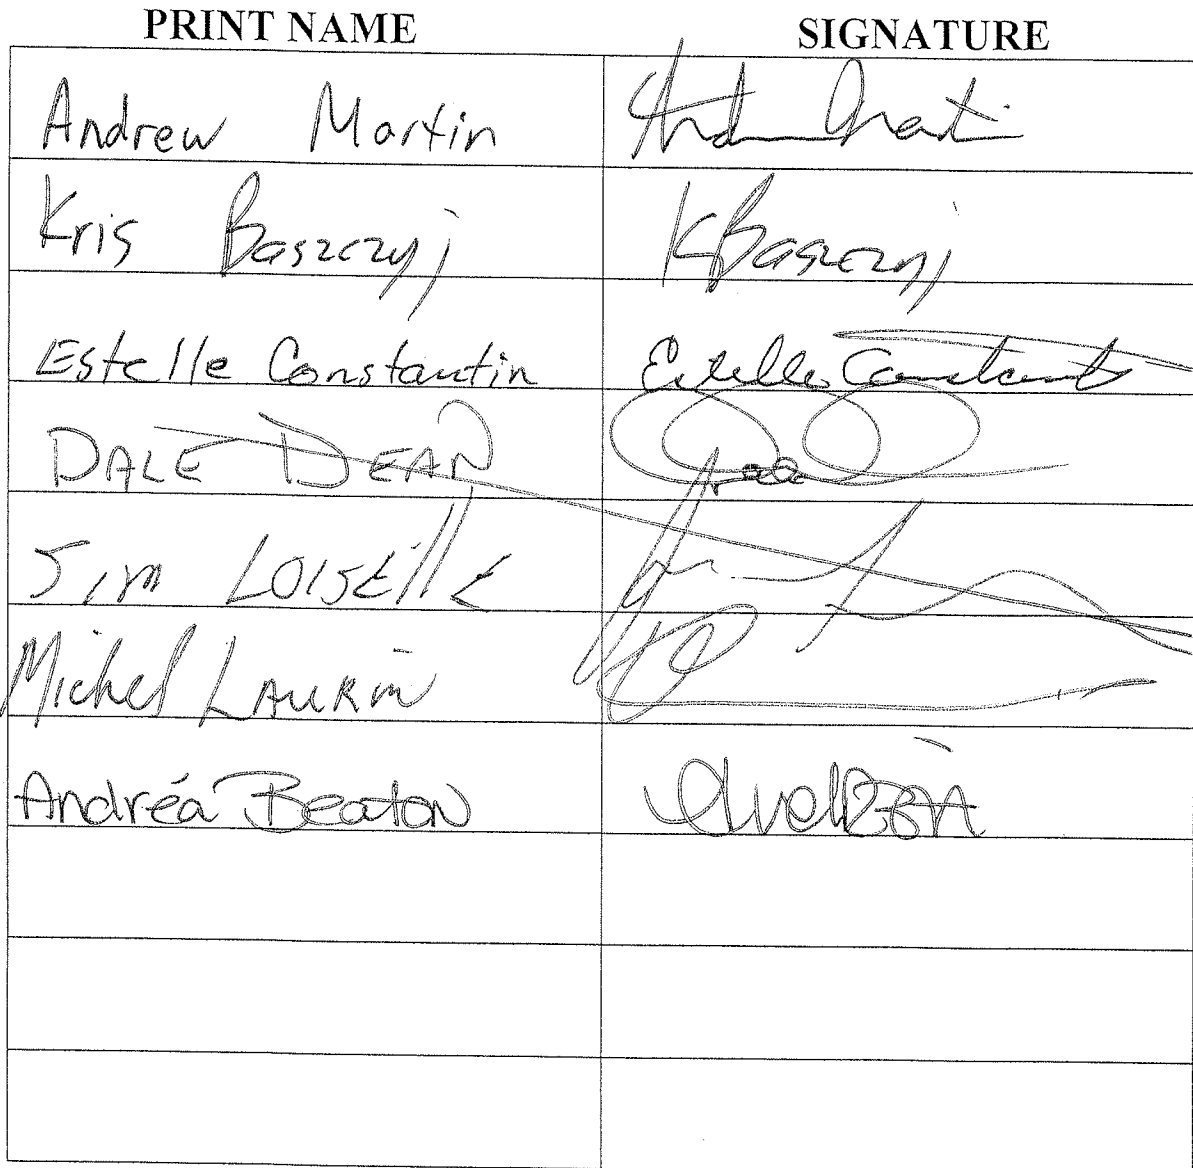 PRINT NAME SIGNATURE
Andrew Martin
Kris Baszczyj KBaszczyj
Estelle Constantin Estelle Constantin
DALE DEAN
JIM LOISELLE
Michel LAURIN
Andréa Beaton